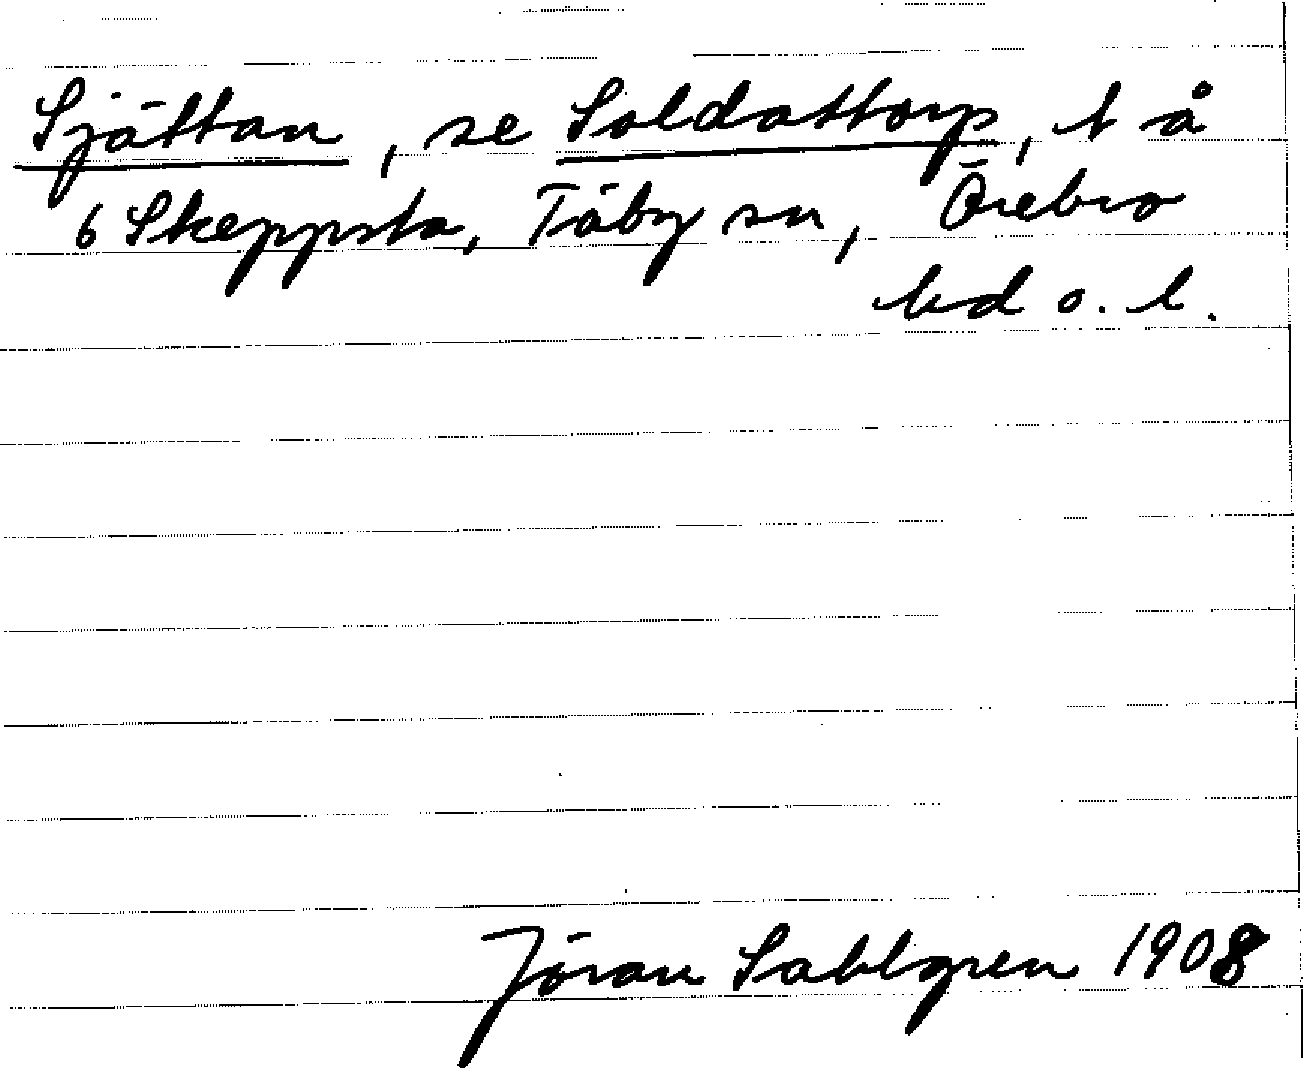 Sjättan, se Soldattorp, t å
6 Skeppsta, Täby sn, Örebro
hd o. l.
Jöran Sahlgren 1908